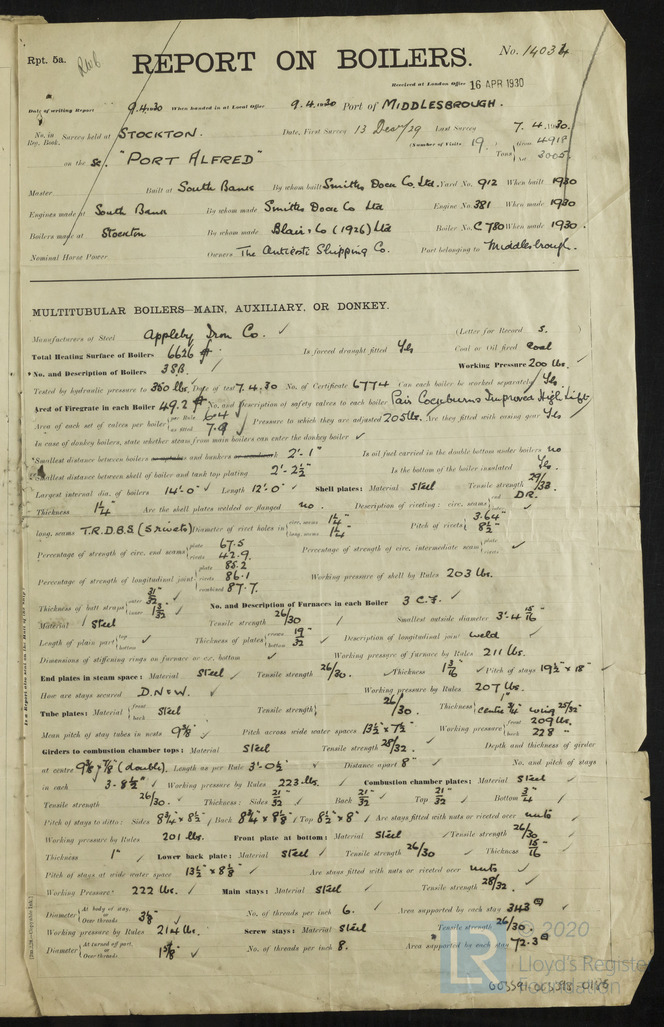 Rpt. 5a.
REPORT ON BOILERS.
No. 14034
Received at London Office 16 APR 1930
Date of writing Report 9.4.1930 When handed in at Local Office 9.4.1930 Port of MIDDLESBROUGH.
No. in Reg. Book. Survey held at STOCKTON. Date, First Survey 13 Dec/29 Last Survey 7.4.1930.
(Number of Visits 19.) Gross 4918
on the Sc. "PORT ALFRED" Tons Net 3005
Master Built at South Bank By whom built Smiths Dock Co. Ltd. Yard No. 912 When built 1930
Engines made at South Bank By whom made Smiths Dock Co Ltd Engine No. 381 When made 1930
Boilers made at Stockton By whom made Blair & Co (1926) Ltd Boiler No. C780 When made 1930.
Nominal Horse Power Owners The Anticosti Shipping Co. Port belonging to Middlesbrough.
MULTITUBULAR BOILERS MAIN, AUXILIARY, OR DONKEY.
Manufacturers of Steel Appleby Iron Co. ✓ (Letter for Record S. )
Total Heating Surface of Boilers 6626 Is forced draught fitted Yes Coal or Oil fired Coal
No. and Description of Boilers 3SB. Working Pressure 200 lbs.
Tested by hydraulic pressure to 350 lbs. Date of test 7.4.30 No. of Certificate 6774 Can each boiler be worked separately Yes
Area of Firegrate in each Boiler 49.2 No. and Description of safety valves to each boiler Pair Cockburns Improved High Lift
Area of each set of valves per boiler per Rule 6.4 as fitted 7.9 Pressure to which they are adjusted 205 lbs. Are they fitted with easing gear Yes
In case of donkey boilers, state whether steam from main boilers can enter the donkey boiler ✓
Smallest distance between boilers or uptakes and bunkers or woodwork 2'-1" Is oil fuel carried in the double bottom under boilers no
Smallest distance between shell of boiler and tank top plating 2'-2½" Is the bottom of the boiler insulated Yes.
Largest internal dia. of boilers 14'-0" ✓ Length 12'-0" ✓ Shell plates: Material Steel Tensile strength 29/33.
Thickness 1¼" Are the shell plates welded or flanged no. Description of riveting: circ. seams end D.R.
long. seams T.R.D.B.S. (5 rivets) Diameter of rivet holes in circ. seams 1¼" long. seams 1¼" Pitch of rivets 3.64" 8½"
Percentage of strength of circ. end seams plate 67.5 rivets 42.9. Percentage of strength of circ. intermediate seam plate rivets ✓
Percentage of strength of longitudinal joint plate 85.2 rivets 86.1 combined 87.7. Working pressure of shell by Rules 203 lbs.
Thickness of butt straps outer 31/32" inner 1 3/32" No. and Description of Furnaces in each Boiler 3 C.F. ✓
Material Steel Tensile strength 26/30 Smallest outside diameter 3'-4 15/16"
Length of plain part top bottom ✓ Thickness of plates crown bottom 19/32" Description of longitudinal joint weld ✓
Dimensions of stiffening rings on furnace or c.c. bottom ✓ Working pressure of furnace by Rules 211 lbs.
End plates in steam space: Material Steel ✓ Tensile strength 26/30. ✓ Thickness 1 3/16" ✓ Pitch of stays 19½" x 18" ✓
How are stays secured D.N & W. Working pressure by Rules 207 lbs.
Tube plates: Material front back Steel Tensile strength 26/30. Thickness 1" Centre 3/4" wing 25/32"
Mean pitch of stay tubes in nests 9⅜" Pitch across wide water spaces 13½" x 7½" Working pressure front 209 lbs. back 228 "
Girders to combustion chamber tops: Material Steel Tensile strength 28/32. Depth and thickness of girder
at centre 9⅜" x ⅞" (double). Length as per Rule 3'-0½" Distance apart 8" ✓ No. and pitch of stays
in each 3-8½" ✓ Working pressure by Rules 223 lbs. Combustion chamber plates: Material Steel ✓
Tensile strength 26/30. ✓ Thickness: Sides 21/32" Back 21/32" Top 21/32" Bottom 3/4" ✓
Pitch of stays to ditto: Sides 8¾" x 8½" Back 8¾" x 8⅛" Top 8½" x 8" Are stays fitted with nuts or riveted over nuts ✓
Working pressure by Rules 201 lbs. Front plate at bottom: Material Steel ✓ Tensile strength 26/30
Thickness 1" ✓ Lower back plate: Material Steel ✓ Tensile strength 26/30 ✓ Thickness 15/16"
Pitch of stays at wide water space 13½" x 8⅛" ✓ Are stays fitted with nuts or riveted over nuts ✓
Working Pressure 222 lbs. ✓ Main stays: Material Steel ✓ Tensile strength 28/32.
Diameter At body of stay, or Over threads 3⅛" ✓ No. of threads per inch 6. ✓ Area supported by each stay 343
Working pressure by Rules 214 lbs. Screw stays: Material Steel Tensile strength 26/30.
Diameter At turned off part, or Over threads 1⅝" ✓ No. of threads per inch 8. Area supported by each stay 72.3
© 2020
LR
Lloyd's Register
Foundation
003391-003398-0185